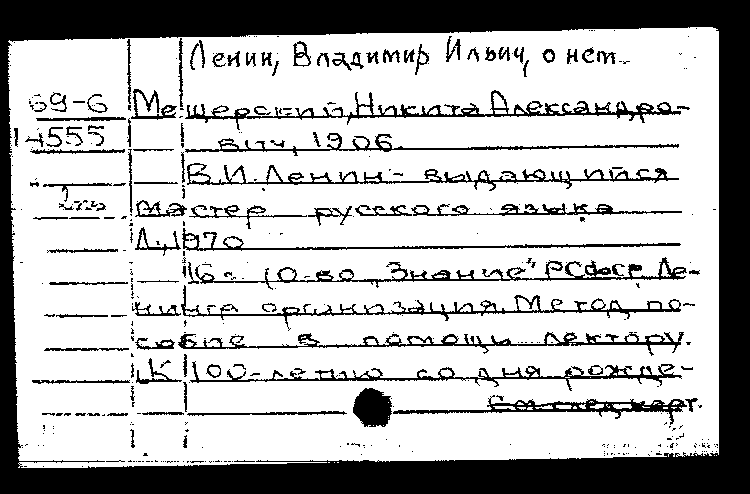 Ленин, Владимир Ильич, о нем.
69-6 Мещерский, Никита Александро-
14555 вич, 1906.
В.И. Ленин - выдающийся
мастер русского языка
Л., 1970
16с. (О-во "Знание" РСФСР. Ле-
нингр организация. Метод по-
собие в помощь лектору.
К 100-летию со дня рожде-
См след карт.